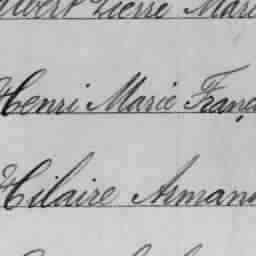 Pierre Marie
Henri Marie Franç
Hilaire Arman